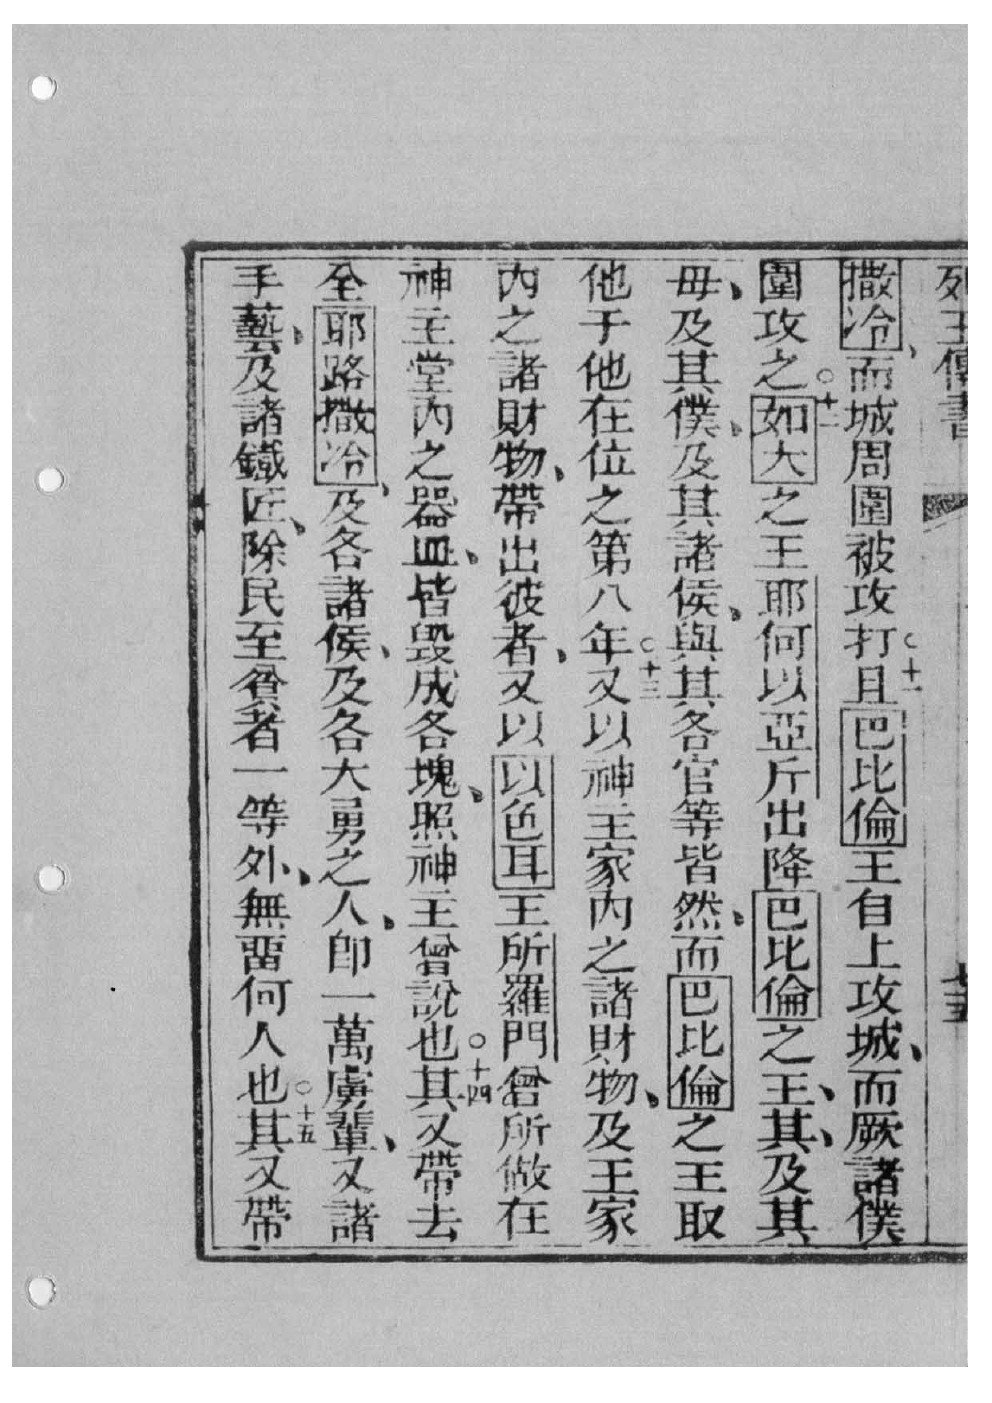 列王傳書
七五
撒冷、而城周圍被攻打○十一且巴比倫王自上攻城、而厥諸僕
圍攻之○十二如大之王耶何以亞斤出降巴比倫之王、其、及其
母、及其僕、及其諸侯、與其各官等皆然、而巴比倫之王取
他于他在位之第八年○十三又以神主家內之諸財物、及王家
內之諸財物、帶出彼者、又以以色耳王所羅門曾所做在
神主堂內之器皿、皆毀成各塊、照神主曾說也○十四其又帶去
全耶路撒冷、及各諸侯、及各大勇之人、卽一萬虜輩、又諸
手藝、及諸鐵匠、除民至貧者一等外、無留何人也○十五其又帶